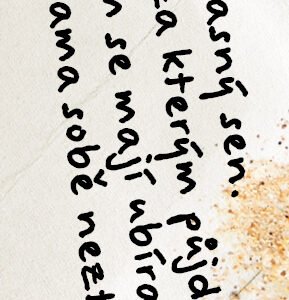 asný sen.
a kterým půjd
n se mají ubíra
ama sobě nezt